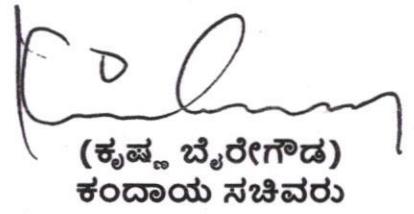 (ಕೃಷ್ಣ ಬೈರೇಗೌಡ)
ಕಂದಾಯ ಸಚಿವರು